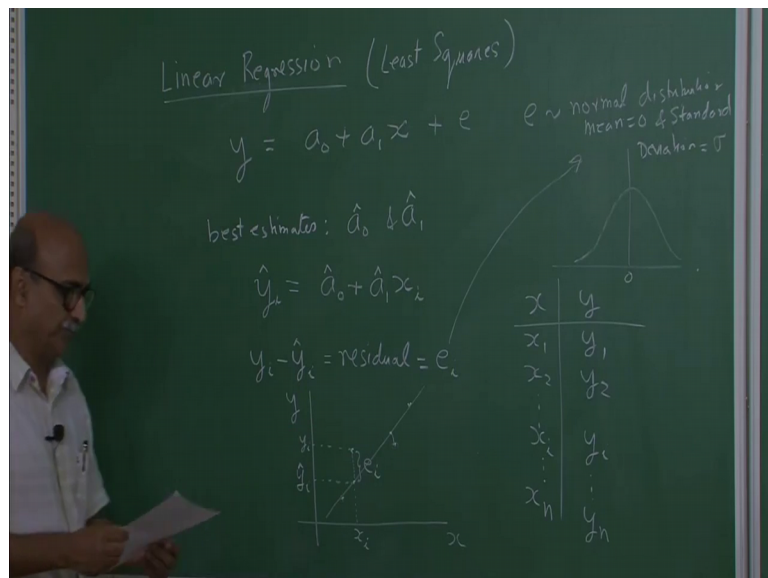 Linear Regression (Least Squares)
y = a₀ + a₁x + e
e ~ normal distribution
mean=0 & Standard
Deviation = σ
0
best estimates: â₀ & â₁
ŷᵢ = â₀ + â₁xᵢ
yᵢ - ŷᵢ = residual = eᵢ
y
yᵢ
ŷᵢ
eᵢ
xᵢ
x
x y
x₁ y₁
x₂ y₂
⋮
xᵢ yᵢ
⋮ ⋮
xₙ yₙ